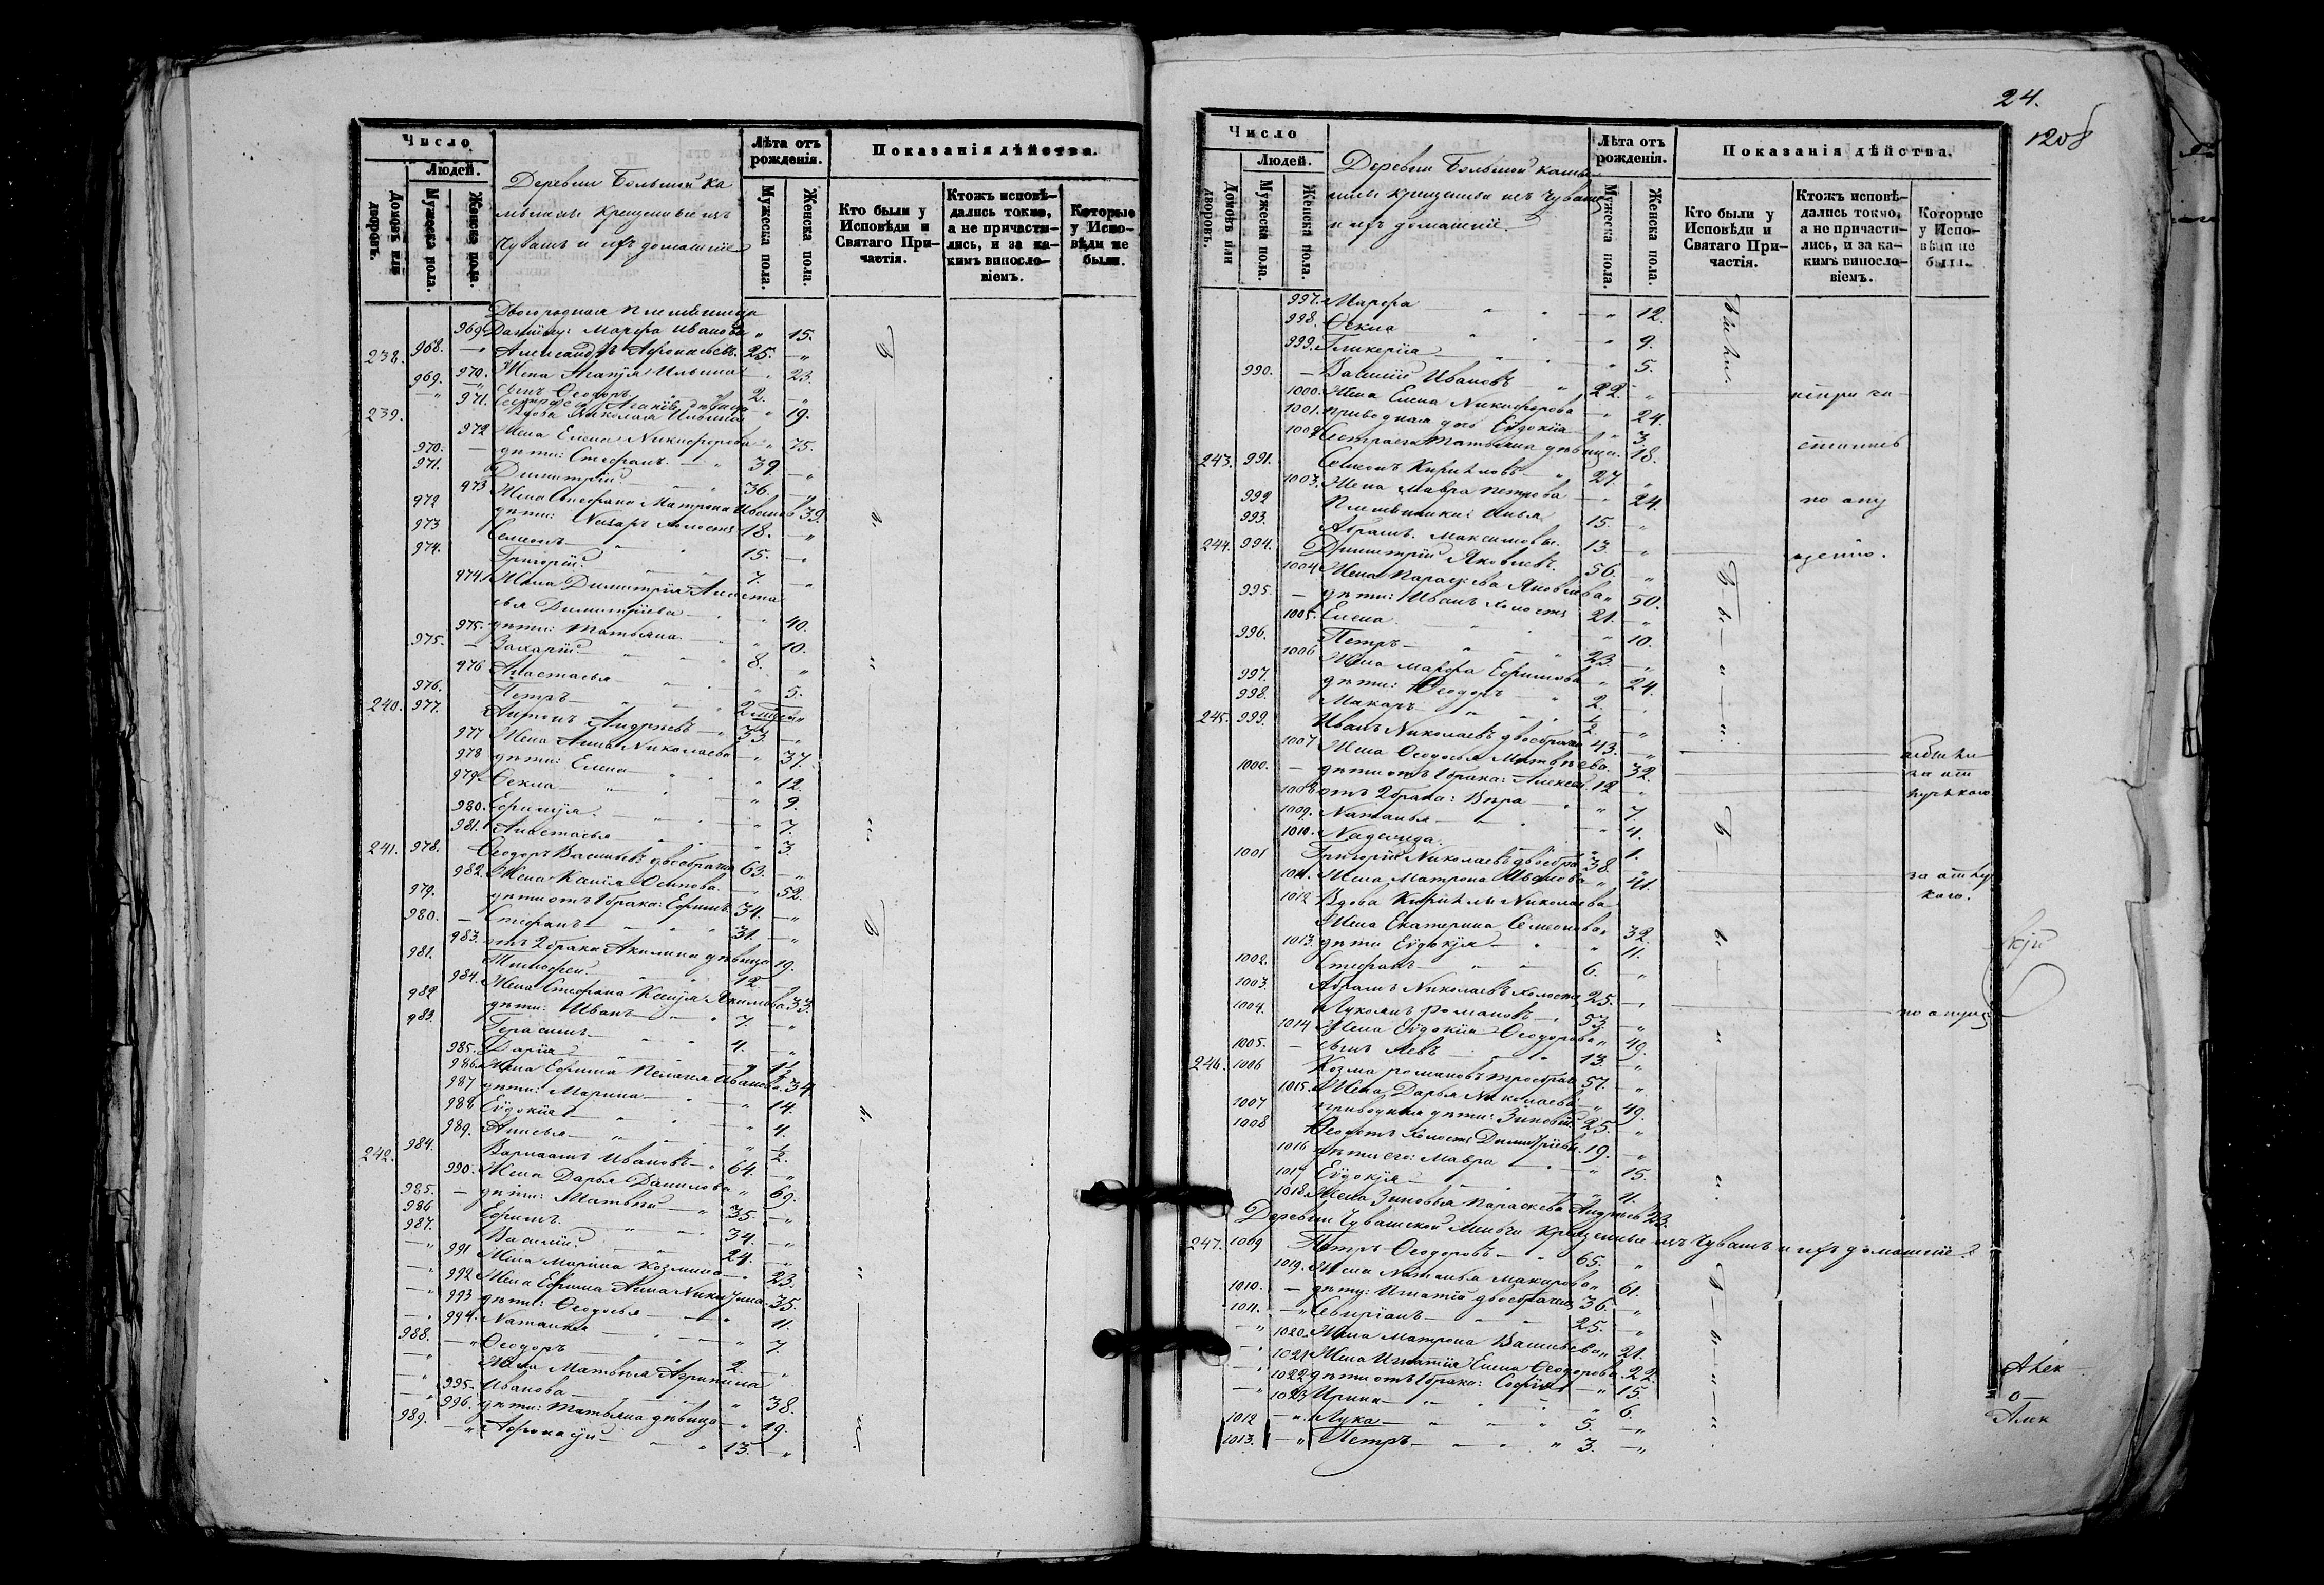 Число
Людей.
Домовъ или дворовъ.
Мужеска пола.
Женска пола.
Деревни Большой Ка
мыши Крещеные изъ
Чувашъ и ихъ домашніе
Лѣта отъ рожденія.
Мужеска пола.
Женска пола.
Показанія дѣйства.
Кто были у Исповѣди и Святаго Причастія.
Ктожъ исповѣдались токмо, а не причастились, и за какимъ винословіемъ.
Которые у Исповѣди не были.
Двоюродная племянница
969 Марфа Иванова " 15.
238. 968. — Александръ Афонасьевъ. 25. — "
970. Жена Агапія Ильина " 23.
969. — сынъ Ѳеодоръ 2. — "
971. " 19.
239. Вдова Николая Ильина
972 Жена Елена Никифорова — " 75.
970. — дѣти: Стефанъ. — " 39. — "
971. Димитрій 36. — "
973 Жена Стефана Матрона 39.
972 дѣти: Назаръ холостъ 18. — "
973 Семенъ 15. — "
974. Григорій 7. — "
974. Жена Димитрія Анаста
сья Димитріева " 40.
975. дѣти: Татьяна " 10.
975. — Захарій 8. "
976 Анастасья " 5.
976. Петръ 2
240. 977. Антонъ Андреевъ — " 33. — "
977 Жена Анна Николаева — " 37.
978 дѣти: Елена " 12.
979. Ѳекла " 9.
980. Ефимія " 7.
981. Анастасья " 3.
241. 978. Ѳеодоръ Васильевъ двоебрачн 63. — "
982. Жена Ксенія Осипова " 52.
979. дѣти отъ 1 брака: Ефимъ 34. — "
980. — Стефанъ 31. — "
983. отъ 2 брака Акилина дѣвица 19.
981. Тимофей 12. — "
984. Жена Стефана Ксенія Якимова 33.
982 дѣти: Иванъ 7. — "
983. Герасимъ 4. — "
985. Дарія
986. Жена Ефима Пелагія Иванова. 34.
987 дѣти: Марина " 14.
988 Евдокія " 4.
989. Анисья " ½.
242. 984. Варлаамъ Ивановъ — " 64. — "
990. Жена Дарья Данилова " 69.
985. — дѣти: Матвѣй — " 35. — "
986 Ефимъ. 34. — "
987. Василій. 24. — "
991 Жена Марина Козмина — " 23.
992 Жена Ефима Анна 35.
993 дѣти: Ѳеодосья " 11.
994. Наталья " 7.
988. — " Ѳеодоръ 2. — "
Жена Матвѣя Агрипина
995. Иванова " 38.
996. дѣти: Татьяна дѣвица — " 19.
989. — " Афонасій 13. — "
24.
120об
Число
Людей.
Домовъ или дворовъ.
Мужеска пола.
Женска пола.
Деревни Большой Камы-
ши Крещеные изъ Чувашъ
и ихъ домашніе.
Лѣта отъ рожденія.
Мужеска пола.
Женска пола.
Показанія дѣйства.
Кто были у Исповѣди и Святаго Причастія.
Ктожъ исповѣдались токмо, а не причастились, и за какимъ винословіемъ.
Которые у Исповѣди не были.
997. Марфа " 12.
998. Ѳекла " 9.
999. Гликерія " 5.
990. — Василій Ивановъ — " 22. — "
1000. Жена Елена Никифорова — " 24.
1001. приводная дочь Евдокія " 3.
1002 Сестра его Татьяна дѣвица. 18.
243. 991. Семенъ Кириловъ " 27. "
1003. Жена Мавра Петрова " 24.
992 Племянники: Илья 15. — "
993. Абрамъ. Максимовы. 13. — "
244. 994. Димитрій Яковлевъ 56. — "
1004 Жена Параскева Яковлева " 50.
995. — дѣти: Иванъ холостъ 21. — "
1005. Елена " 10.
996. Петръ 23. — "
1006 Жена Марфа Ефимова " 24.
997. дѣти: Ѳеодоръ 2. "
998. Макаръ ½. — "
245. 999. Иванъ Николаевъ двоебрачн 43. — "
1007 Жена Ѳеодосья Матвѣева. 32.
1000. — дѣти отъ 1 брака: Алексей 12 "
1008 отъ 2 брака: Вѣра " 7.
1009. Наталья " 4.
1010. Надежда. " 1.
1001 Григорій Николаевъ двоебра 38. "
1011. Жена Матрона Иванова " 41.
1012 Вдова Кирилы Николаева
Жена Екатерина Семенова " 32.
1013. дѣти Евдокія " 11.
1002. Стефанъ 6. "
1003. Абрамъ Николаевъ холостъ 25. — "
1004. Лукоянъ Романовъ 53. — "
1014 Жена Евдокія Ѳеодорова " 49.
1005. — сынъ Левъ 13. — "
246. 1006 Козма Романовъ троебрач 57. — "
1015. Жена Дарья Николаева " 49.
1007 приводныя дѣти: Зиновій 25. — "
1008 Ѳеодотъ холостъ Димитріевы. 19. — "
1016 дѣти его: Мавра " 15.
1017 Евдокія
1018 Жена Зиновья Параскева Андреев 23.
Деревни Чувашской Крещенные изъ Чувашъ и ихъ домашніе.
247. 1009 Петръ Ѳеодоровъ — " 65. "
1019. Жена Наталья Макарова " 61.
1010. — дѣти: Игнатій двоебрачн 36. — "
1011. — " Севиріанъ 25. — "
1020. Жена Матрона Васильева " 21.
1021 Жена Игнатія Елена Ѳеодорова. 22.
1022 дѣти отъ 1 брака: Софія — " 15.
1023 Ирина " 6.
1012 — " Лука 5. — "
1013. — " Петръ 3. — "
Были.
неприча
стились
по опу
щенію.
за от
лучкою.
за отлу
кою.
по опущ